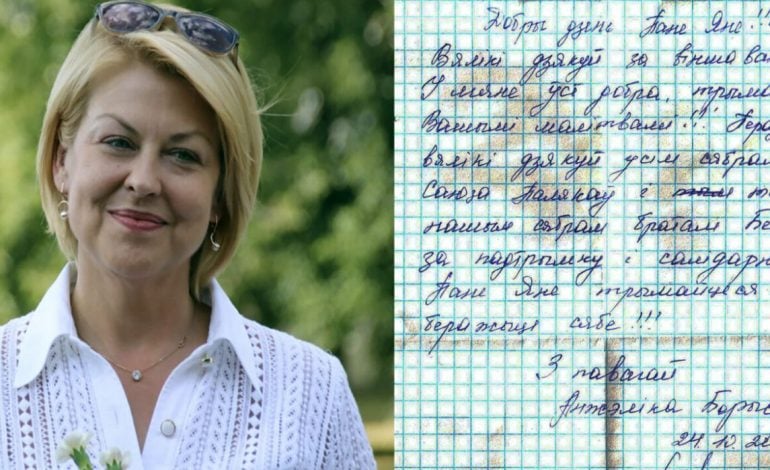 Добры дзень Пане Яне!!
Вялікі дзякуй за віншава
У мяне ўсё добра, трыма
Вашымі малітвамі!!! Пера
вялікі дзякуй усім сябрам
Саюза Палякаў і
нашым сябрам братам Бе
за падтрымку і салідарн
Пане Яне трымайцеся
беражыце сябе!!!
З павагай
Анжэліка Борыс
24.10.20